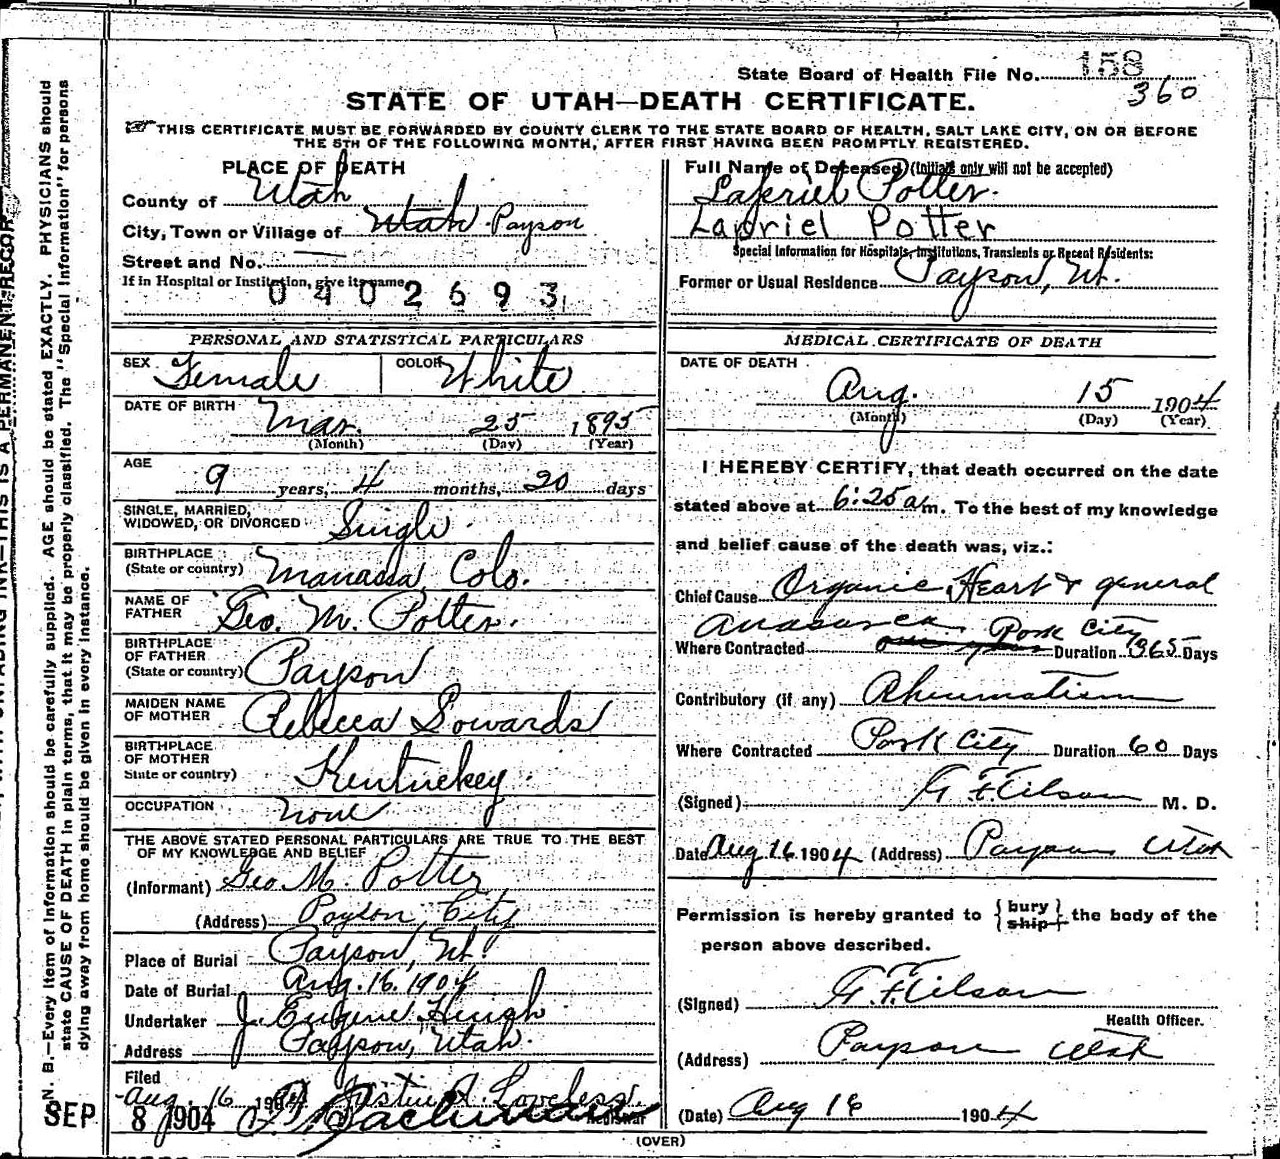 State Board of Health File No. 158
360
STATE OF UTAH—DEATH CERTIFICATE.
THIS CERTIFICATE MUST BE FORWARDED BY COUNTY CLERK TO THE STATE BOARD OF HEALTH, SALT LAKE CITY, ON OR BEFORE
THE 5TH OF THE FOLLOWING MONTH, AFTER FIRST HAVING BEEN PROMPTLY REGISTERED.
PLACE OF DEATH
County of Utah
City, Town or Village of Utah Payson
Street and No. —
If in Hospital or Institution, give its name
0402693
PERSONAL AND STATISTICAL PARTICULARS
SEX Female COLOR White
DATE OF BIRTH Mar. 25 1895
(Month) (Day) (Year)
AGE
9 years, 4 months, 20 days
SINGLE, MARRIED,
WIDOWED, OR DIVORCED Single
BIRTHPLACE
(State or country) Manassa Colo.
NAME OF
FATHER Geo. M. Potter.
BIRTHPLACE
OF FATHER
(State or country) Payson
MAIDEN NAME
OF MOTHER Rebecca Sowards
BIRTHPLACE
OF MOTHER
State or country) Kentuckey.
OCCUPATION None
THE ABOVE STATED PERSONAL PARTICULARS ARE TRUE TO THE BEST
OF MY KNOWLEDGE AND BELIEF
(Informant) Geo. M. Potter
(Address) Payson City
Place of Burial Payson, Ut.
Date of Burial Aug. 16. 1904
Undertaker J. Eugene Huish
Address Payson, Utah.
Filed
Aug. 16 1904 Justin A. Loveless.
Registrar
SEP 8 1904
Full Name of Deceased (Initials only will not be accepted)
Lapriel Potter.
Lapriel Potter
Special Information for Hospitals, Institutions, Transients or Recent Residents:
Former or Usual Residence Payson, Ut.
MEDICAL CERTIFICATE OF DEATH
DATE OF DEATH
Aug. 15 1904
(Month) (Day) (Year)
I HEREBY CERTIFY, that death occurred on the date
stated above at 6:25 a m. To the best of my knowledge
and belief cause of the death was, viz.:
Chief Cause Organic Heart & general
anasarca Park City
Where Contracted one year Duration 1965 Days
Contributory (if any) Rheumatism
Where Contracted Park City Duration 60 Days
(Signed) M. D.
Date Aug 16 1904 (Address) Payson Utah
Permission is hereby granted to {bury ship} the body of the
person above described.
(Signed)
Health Officer.
(Address) Payson Utah
(Date) Aug 16 1904
(OVER)
N. B.—Every item of information should be carefully supplied. AGE should be stated EXACTLY. PHYSICIANS should
state CAUSE OF DEATH in plain terms, that it may be properly classified. The "Special Information" for persons
dying away from home should be given in every instance.
WITH UNFADING INK—THIS IS A PERMANENT RECOR